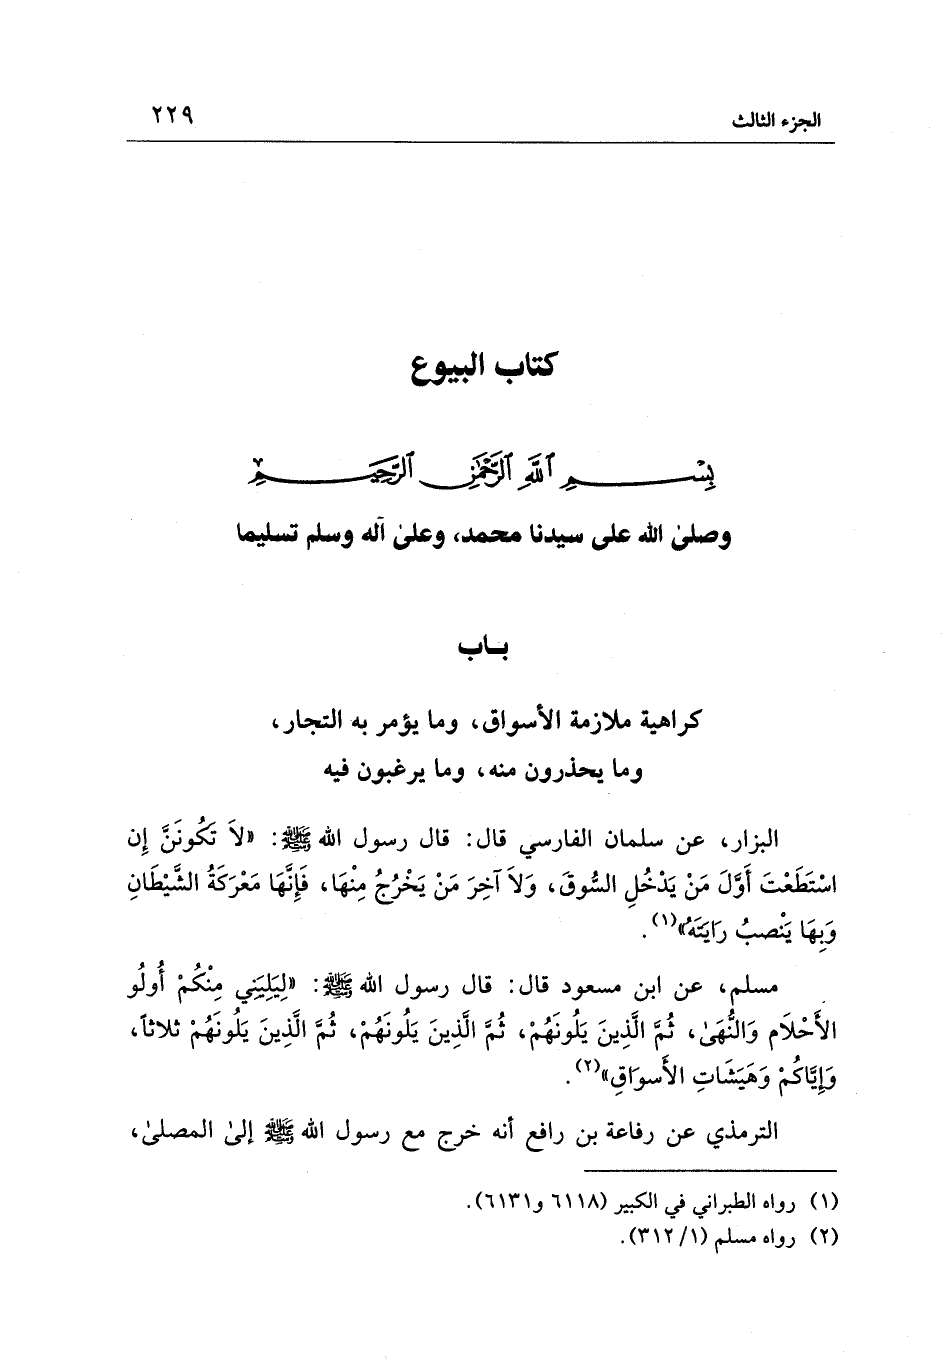 الجزء الثالث ٢٢٩
كتاب البيوع
بِسْمِ ٱللَّهِ ٱلرَّحْمَٰنِ ٱلرَّحِيمِ
وصلىٰ الله على سيدنا محمد، وعلىٰ آله وسلم تسليما
بـاب
كراهية ملازمة الأسواق، وما يؤمر به التجار،
وما يحذرون منه، وما يرغبون فيه
البزار، عن سلمان الفارسي قال: قال رسول الله ﷺ: «لاَ تَكُونَنَّ إِن
اسْتَطَعْتَ أَوَّلَ مَنْ يَدْخُلِ السُّوقَ، وَلاَ آخِرَ مَنْ يَخْرُجُ مِنْهَا، فَإِنَّهَا مَعْرَكَةُ الشَّيْطَانِ
وَبِهَا يَنْصبُ رَايَتَهُ»(١).
مسلم، عن ابن مسعود قال: قال رسول الله ﷺ: «لِيَلِيَنِي مِنْكُمْ أُولُو
الأَحْلَامِ وَالنُّهَىٰ، ثُمَّ الَّذِينَ يَلُونَهُمْ، ثُمَّ الَّذِينَ يَلُونَهُمْ، ثُمَّ الَّذِينَ يَلُونَهُمْ ثلاثاً،
وَإِيَّاكُمْ وَهَيَشَاتِ الأَسوَاقِ»(٢).
الترمذي عن رفاعة بن رافع أنه خرج مع رسول الله ﷺ إلىٰ المصلىٰ،
(١) رواه الطبراني في الكبير (٦١١٨ و٦١٣١).
(٢) رواه مسلم (٣١٢/١).